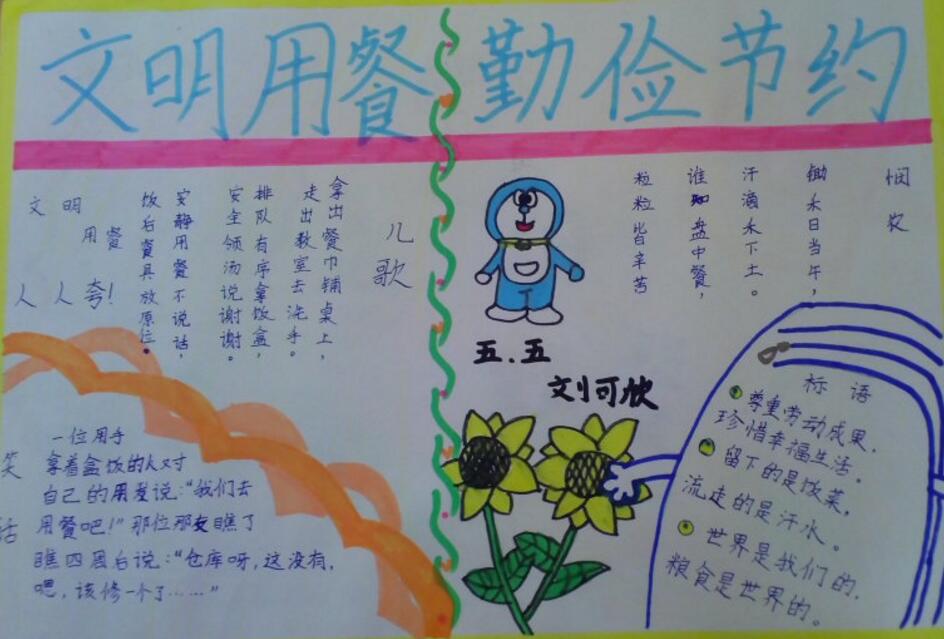 文明用餐 勤俭节约
儿歌
拿出餐巾铺桌上,
走出教室去洗手。
排队有序拿饭盒,
安全领汤说谢谢。
安静用餐不说话,
饭后餐具放原位。
文明
用餐
人人夸!
笑话
一位用手
拿着盒饭的人对
自己的朋友说:“我们去
用餐吧!”那位朋友瞧了
瞧四周后说:“仓库呀,这没有,
嗯,该修一个了……”
悯农
锄禾日当午,
汗滴禾下土。
谁知盘中餐,
粒粒皆辛苦
五.五
刘可欣
标语
尊重劳动成果,
珍惜幸福生活。
留下的是饭菜,
流走的是汗水。
世界是我们的,
粮食是世界的。